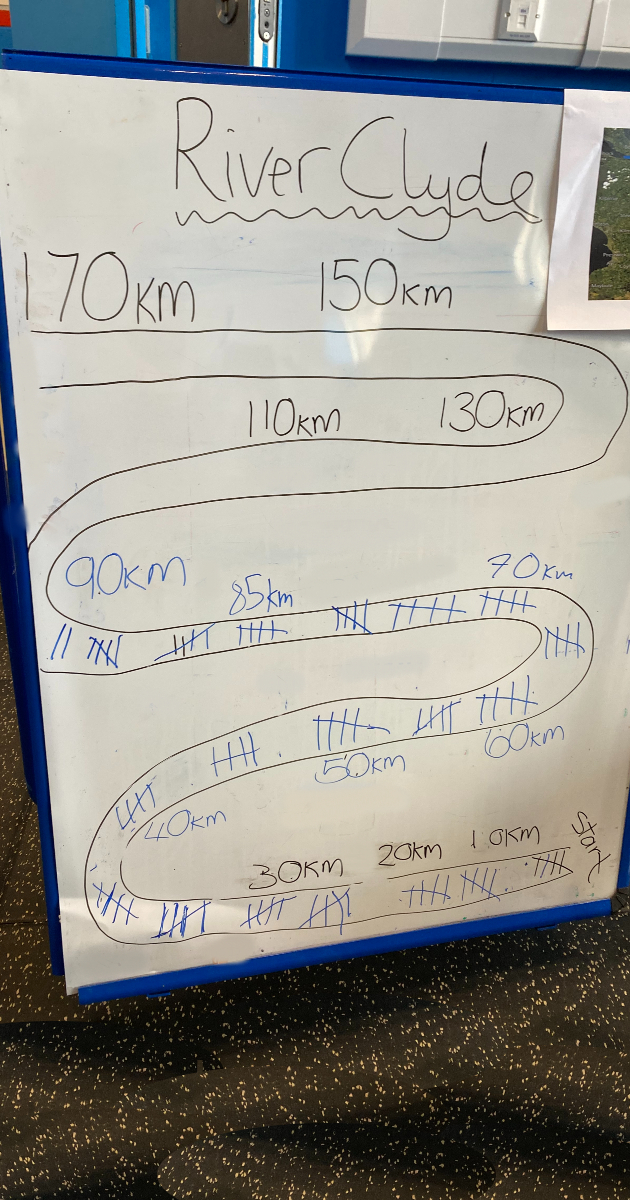 River Clyde
170km 150km
110km 130km
90km 85km 70km
60km
50km
40km
30km 20km 10km Start